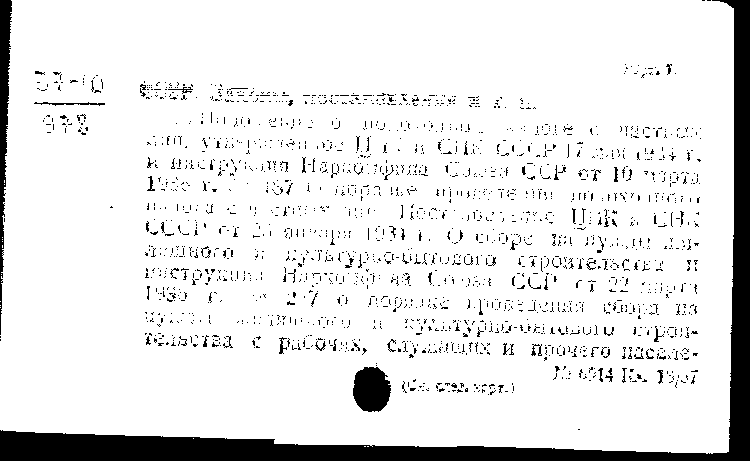 37-10
978
СССР. Законы, постановления и т. п.
Положение о подоходном налоге с частных
лиц, утвержденное ЦИК и СНК СССР 17 мая 1934 г.
и инструкция Наркомфина Союза ССР от 10 марта
1936 г. 187 о порядке проведения подоходного
налога с частных лиц. Постановление ЦИК и СНК
СССР от 23 января 1934 г. О сборе на нужды жи-
лищного и культурно-бытового строительства и
инструкция Наркомфина Союза ССР от 22 марта
1936 г. № 217 о порядке проведения сбора на
нужды жилищного и культурно-бытового строи-
тельства с рабочих, служащих и прочего населе-
№ 6914 Кн. 13/37
(См. след. карт.)